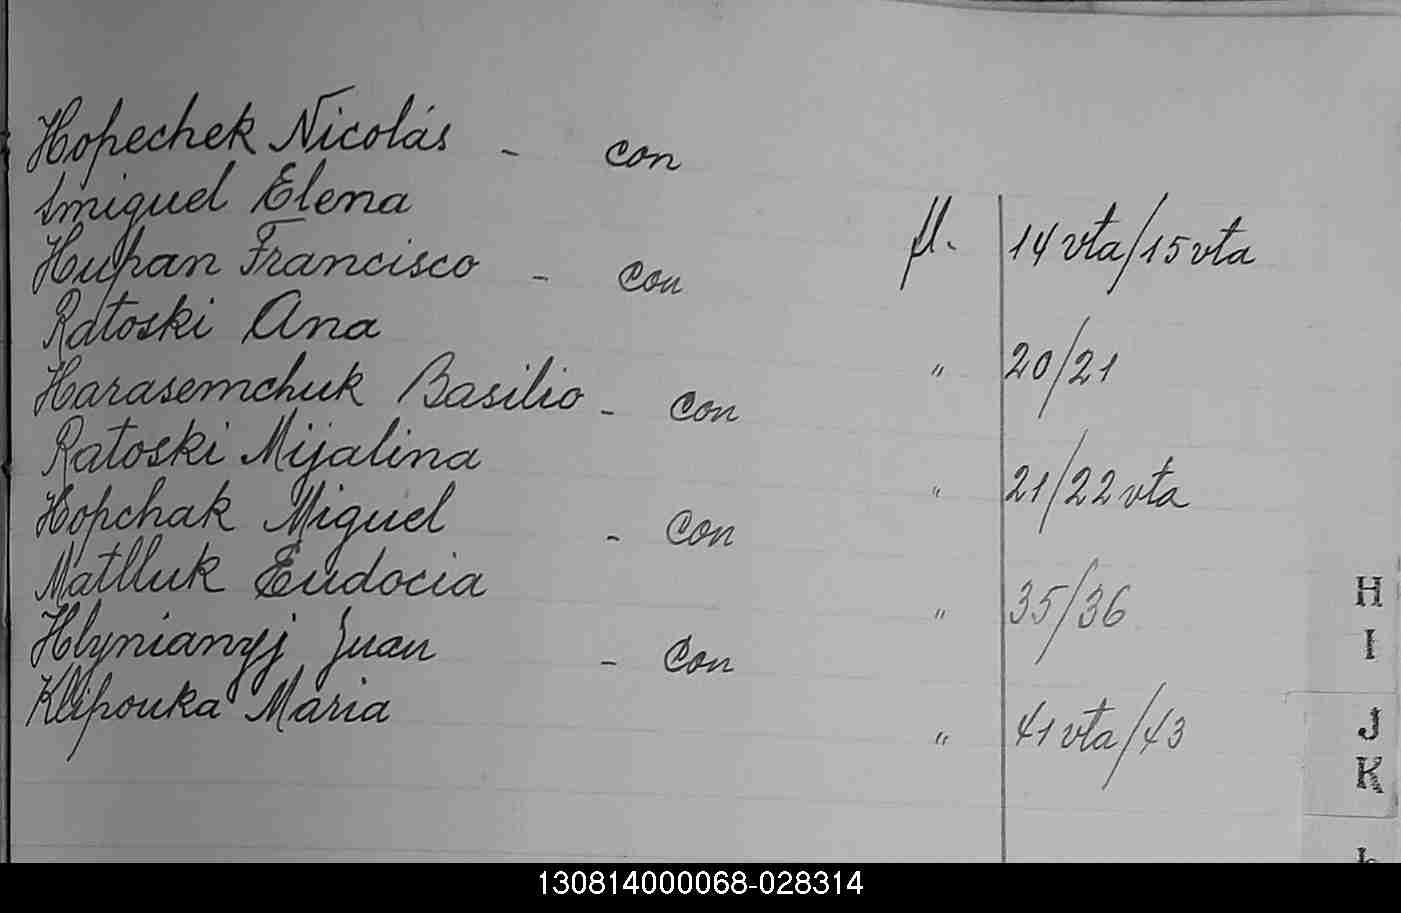 Hopechek Nicolás - con
Smiguel Elena fl. 14 vta/15 vta
Hupan Francisco - con
Ratoski Ana " 20/21
Harasemchuk Basilio - con
Ratoski Mijalina " 21/22 vta
Hopchak Miguel - con
Matlluk Eudocia " 35/36
Hlynianyj Juan - con
Klipouka Maria " 41 vta/43
H
I
J
K
130814000068-028314